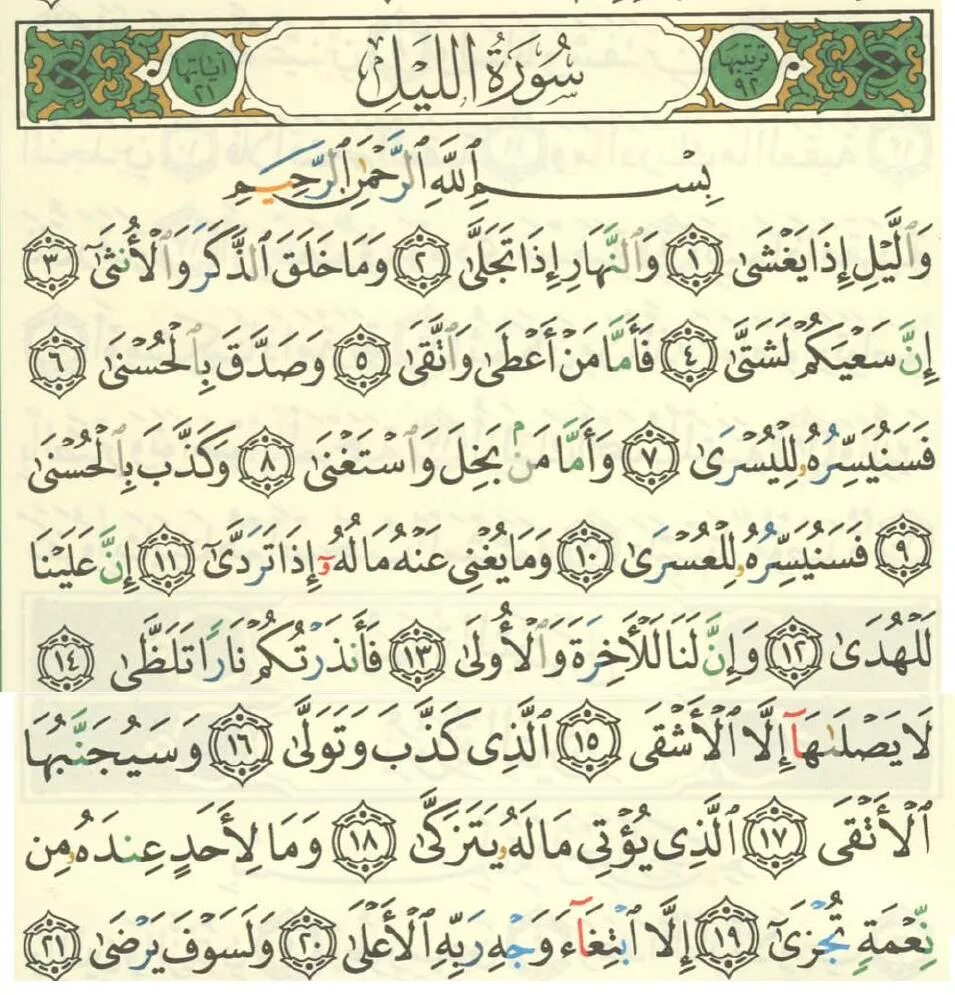 ترتيبها ٩٢ سُورَةُ اللَّيْلِ آياتها ٢١
بِسْمِ ٱللَّهِ ٱلرَّحْمَٰنِ ٱلرَّحِيمِ
وَٱلَّيْلِ إِذَا يَغْشَىٰ ١ وَٱلنَّهَارِ إِذَا تَجَلَّىٰ ٢ وَمَا خَلَقَ ٱلذَّكَرَ وَٱلْأُنثَىٰٓ ٣
إِنَّ سَعْيَكُمْ لَشَتَّىٰ ٤ فَأَمَّا مَنْ أَعْطَىٰ وَٱتَّقَىٰ ٥ وَصَدَّقَ بِٱلْحُسْنَىٰ ٦
فَسَنُيَسِّرُهُۥ لِلْيُسْرَىٰ ٧ وَأَمَّا مَنۢ بَخِلَ وَٱسْتَغْنَىٰ ٨ وَكَذَّبَ بِٱلْحُسْنَىٰ
٩ فَسَنُيَسِّرُهُۥ لِلْعُسْرَىٰ ١٠ وَمَا يُغْنِى عَنْهُ مَالُهُۥٓ إِذَا تَرَدَّىٰٓ ١١ إِنَّ عَلَيْنَا
لَلْهُدَىٰ ١٢ وَإِنَّ لَنَا لَلْءَاخِرَةَ وَٱلْأُولَىٰ ١٣ فَأَنذَرْتُكُمْ نَارًا تَلَظَّىٰ ١٤
لَا يَصْلَىٰهَآ إِلَّا ٱلْأَشْقَى ١٥ ٱلَّذِى كَذَّبَ وَتَوَلَّىٰ ١٦ وَسَيُجَنَّبُهَا
ٱلْأَتْقَى ١٧ ٱلَّذِى يُؤْتِى مَالَهُۥ يَتَزَكَّىٰ ١٨ وَمَا لِأَحَدٍ عِندَهُۥ مِن
نِّعْمَةٍ تُجْزَىٰٓ ١٩ إِلَّا ٱبْتِغَآءَ وَجْهِ رَبِّهِ ٱلْأَعْلَىٰ ٢٠ وَلَسَوْفَ يَرْضَىٰ ٢١